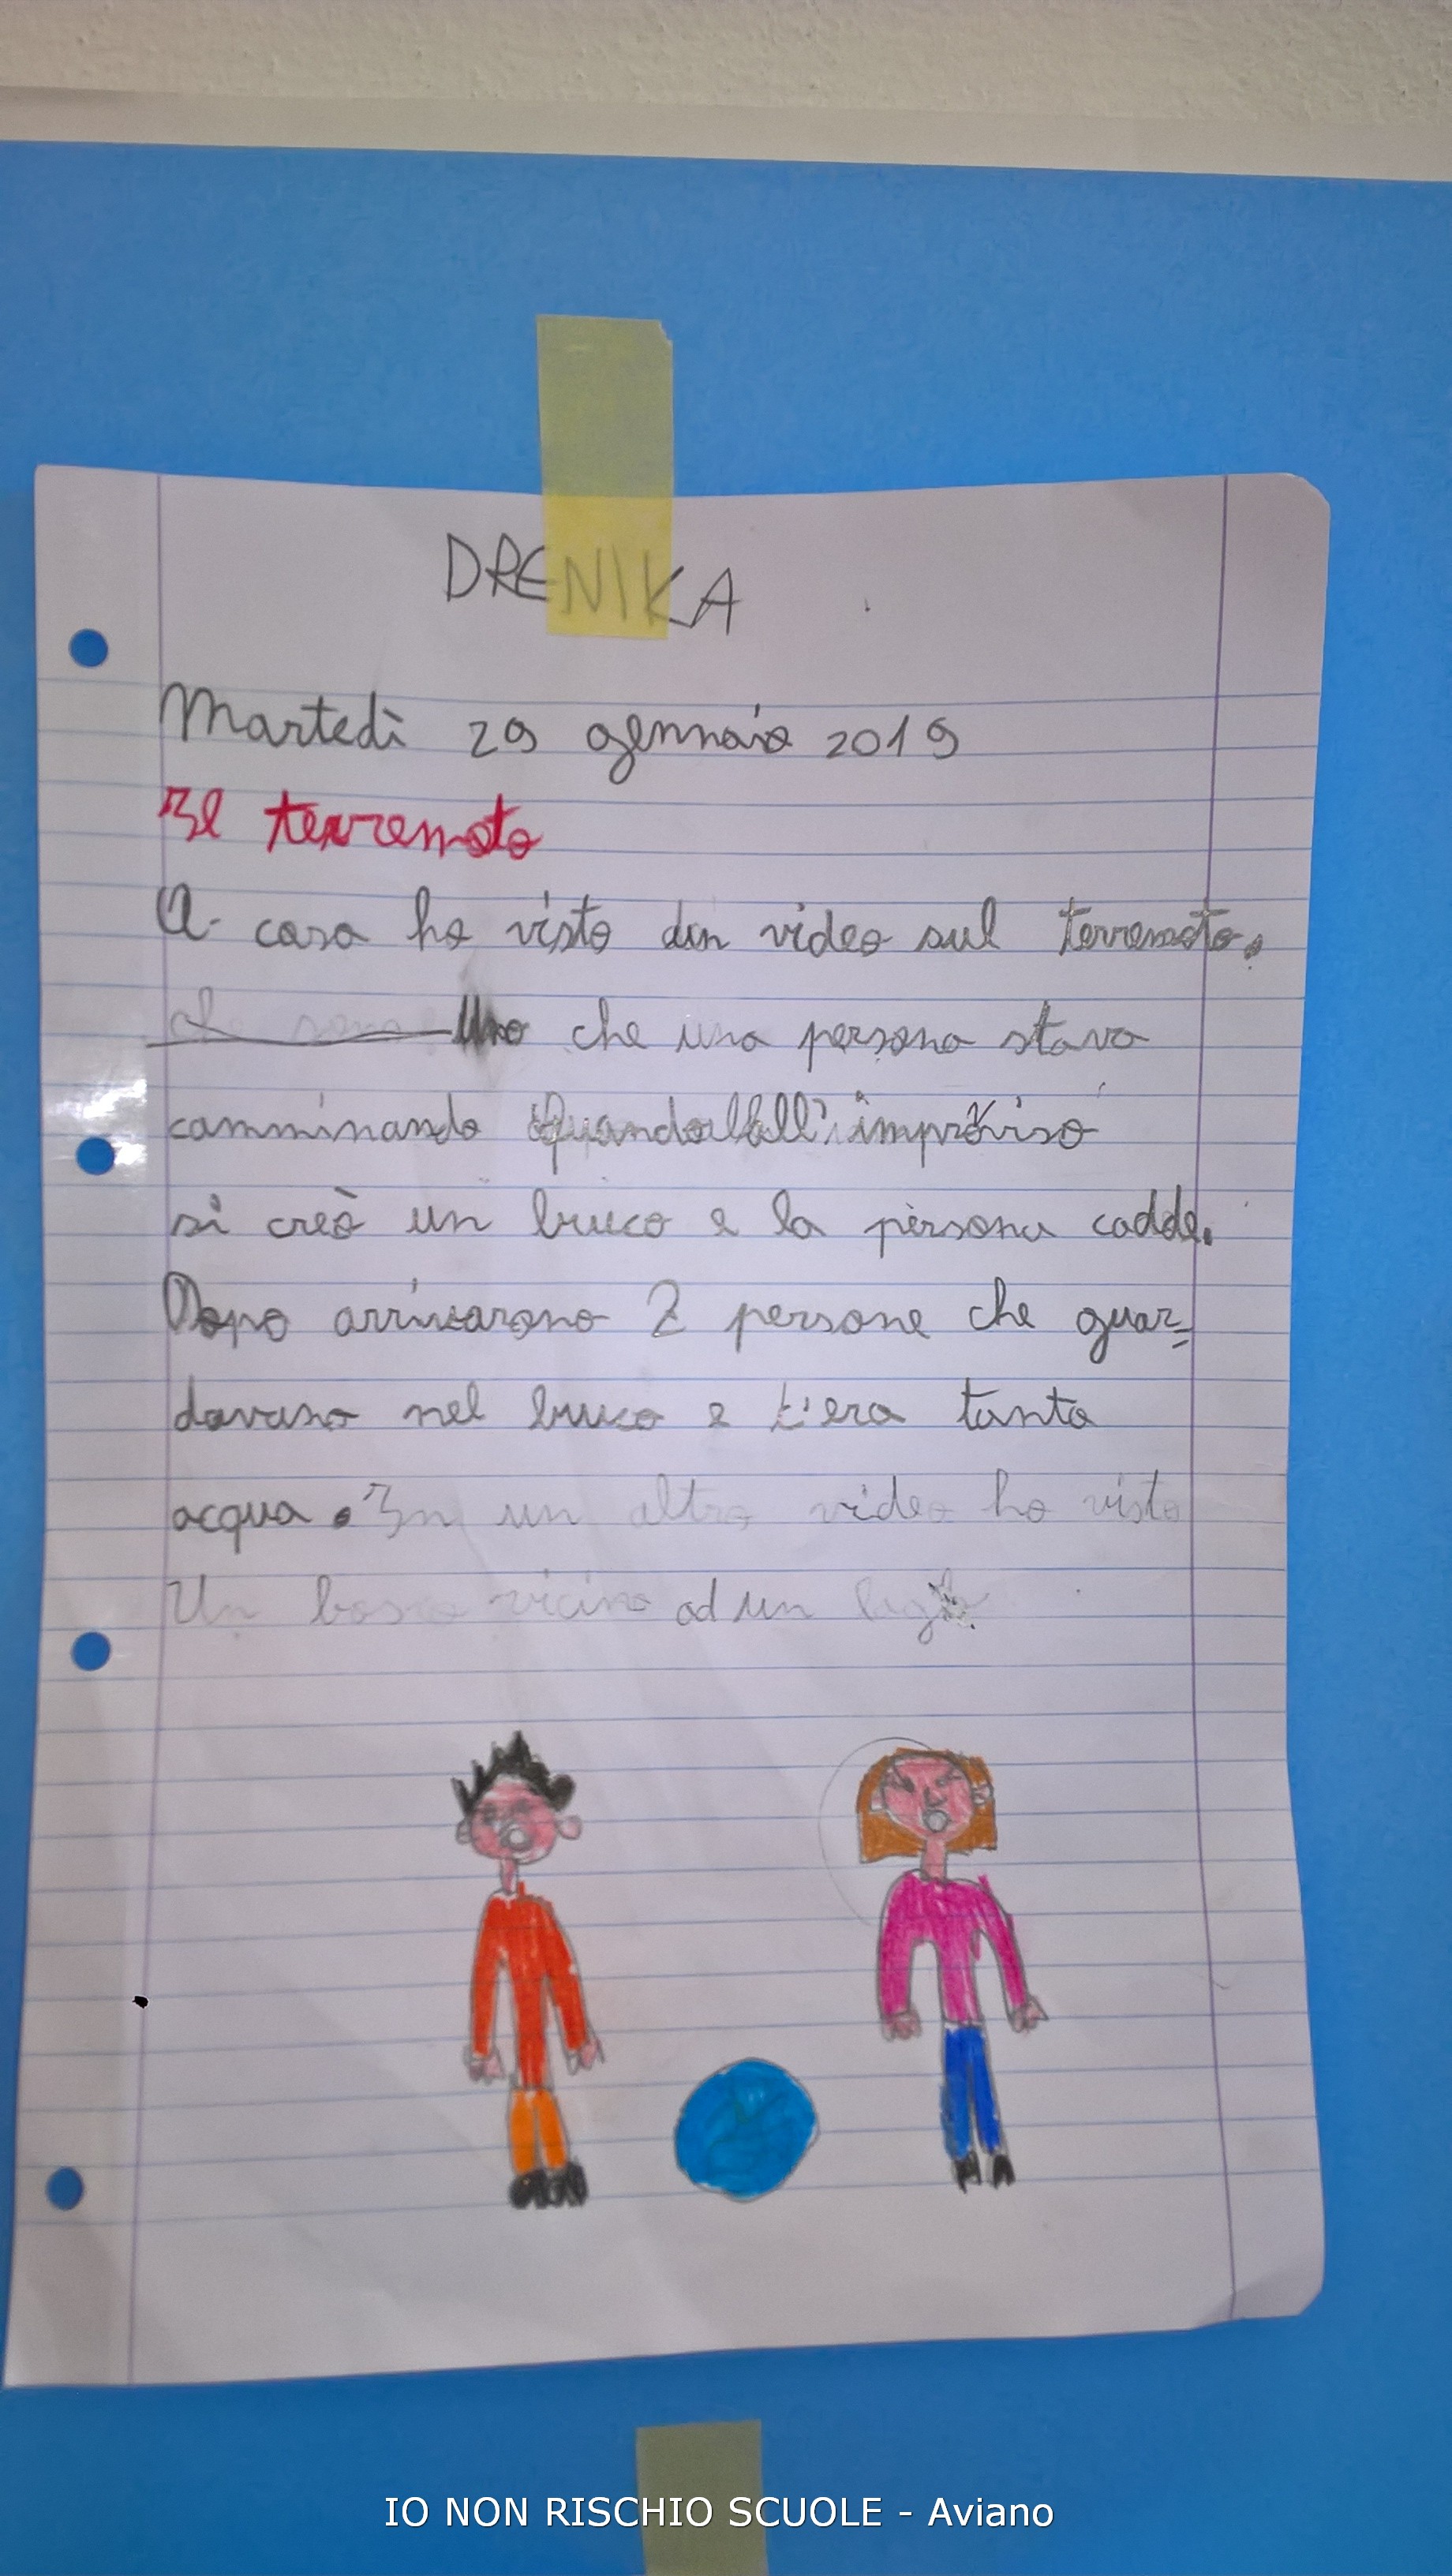 DRENIKA
Martedì 29 gennaio 2019
Il terremoto
A casa ho visto dun video sul terremoto.
Uno che una persona stava
camminando Quando all'improviso
si creò un buco e la persona cadde.
Dopo arrivarono 2 persone che guar=
davano nel buco e c'era tanta
acqua. In un altro video ho visto
Un bosco vicino ad un lago
IO NON RISCHIO SCUOLE - Aviano